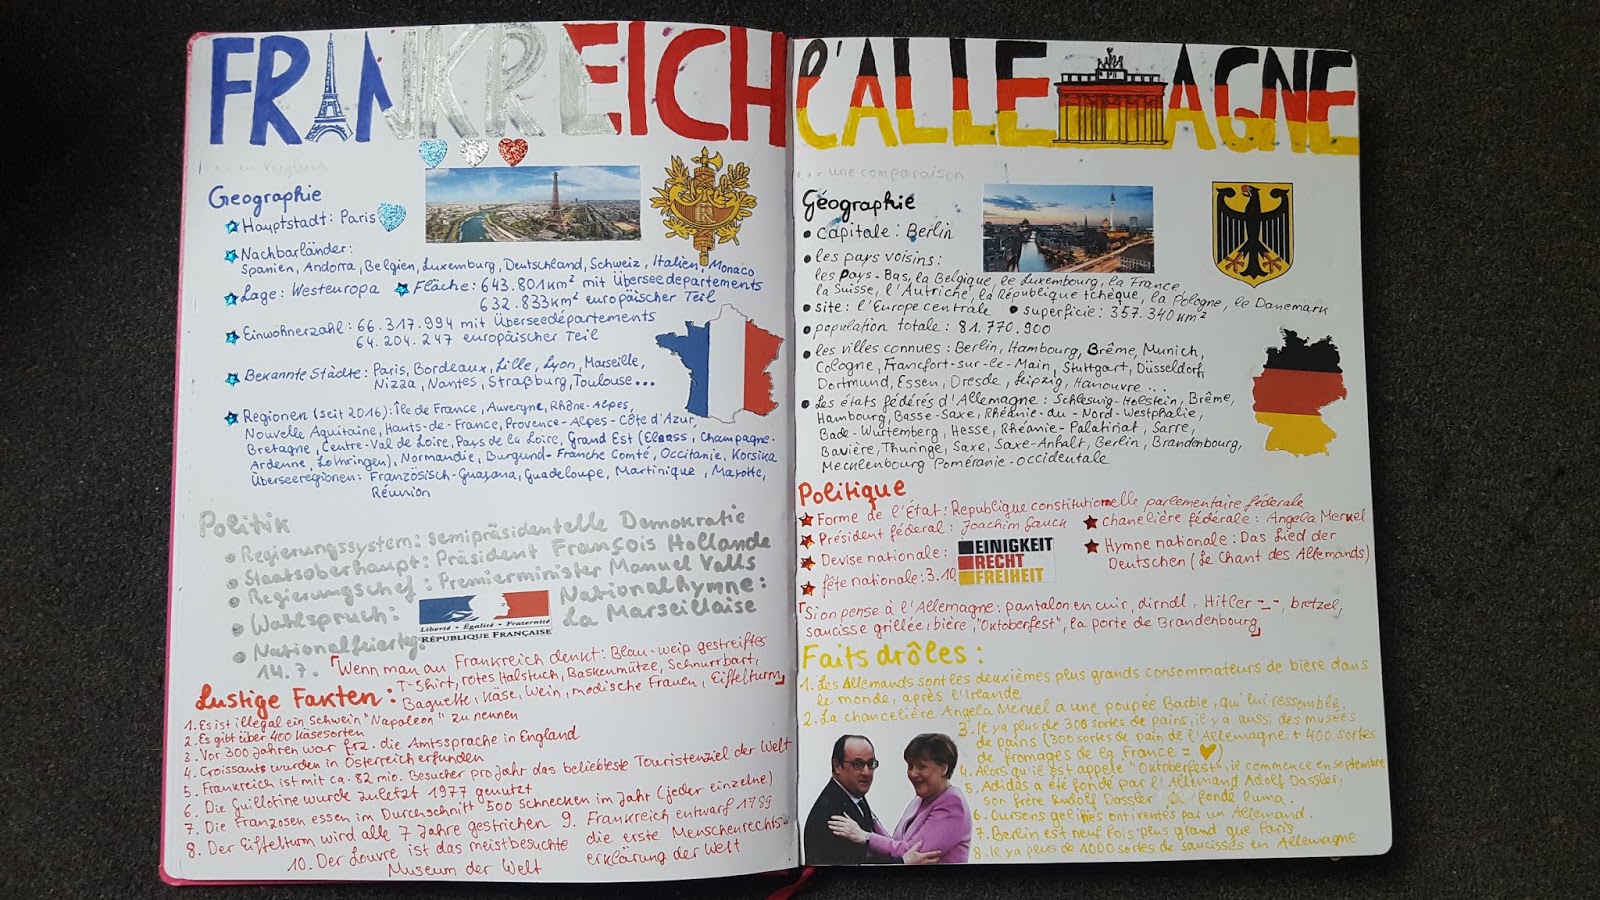 FRANKREICH
... im Vergleich
Geographie
Hauptstadt: Paris
Nachbarländer:
Spanien, Andorra, Belgien, Luxemburg, Deutschland, Schweiz, Italien, Monaco
Lage: Westeuropa
Fläche: 643.801km² mit Überseedepartements
632.833km² europäischer Teil
Einwohnerzahl: 66.317.994 mit Überseedépartements
64.204.247 europäischer Teil
Bekannte Städte: Paris, Bordeaux, Lille, Lyon, Marseille,
Nizza, Nantes, Straßburg, Toulouse...
Regionen (seit 2016): Île de France, Auvergne, Rhône-Alpes,
Nouvelle Aquitaine, Hauts-de-France, Provence-Alpes-Côte d'Azur,
Bretagne, Centre-Val de Loire, Pays de la Loire, Grand Est (Elsass, Champagne-
Ardenne, Lothringen), Normandie, Burgund-Franche Comté, Occitanie, Korsika
Überseeregionen: Französisch-Guayana, Guadeloupe, Martinique, Mayotte,
Réunion
Politik
Regierungssystem: semipräsidentielle Demokratie
Staatsoberhaupt: Präsident François Hollande
Regierungschef: Premierminister Manuel Valls
Wahlspruch:
Liberté • Égalité • Fraternité
RÉPUBLIQUE FRANÇAISE
Nationalhymne:
La Marseillaise
Nationalfeiertag:
14.7.
"Wenn man an Frankreich denkt: Blau-weiß gestreiftes
T-Shirt, rotes Halstuch, Baskenmütze, Schnurrbart,
Baguette, Käse, Wein, modische Frauen, Eiffelturm"
Lustige Fakten:
1. Es ist illegal ein Schwein "Napoleon" zu nennen
2. Es gibt über 400 Käsesorten
3. Vor 300 Jahren war frz. die Amtssprache in England
4. Croissants wurden in Österreich erfunden
5. Frankreich ist mit ca. 82 mio. Besucher pro Jahr das beliebteste Touristenziel der Welt
6. Die Guillotine wurde zuletzt 1977 genutzt
7. Die Franzosen essen im Durchschnitt 500 Schnecken im Jahr (jeder einzelne)
8. Der Eiffelturm wird alle 7 Jahre gestrichen
9. Frankreich entwarf 1789
die erste Menschenrechts-
erklärung der Welt
10. Der Louvre ist das meistbesuchte
Museum der Welt
l'ALLEMAGNE
... une comparaison
Géographie
capitale: Berlin
les pays voisins:
les Pays-Bas, la Belgique, le Luxembourg, la France
la Suisse, l'Autriche, la République tchèque, la Pologne, le Danemark
site: l'Europe centrale
superficie: 357.340km²
population totale: 81.770.900
les villes connues: Berlin, Hambourg, Brême, Munich,
Cologne, Francfort-sur-le-Main, Stuttgart, Düsseldorf,
Dortmund, Essen, Dresde, Leipzig, Hanouvre...
Les états fédérés d'Allemagne: Schleswig-Holstein, Brême,
Hambourg, Basse-Saxe, Rhéanie-du-Nord-Westphalie,
Bade-Wurtemberg, Hesse, Rhéanie-Palatinat, Sarre,
Bavière, Thuringe, Saxe, Saxe-Anhalt, Berlin, Brandenbourg,
Mecklenbourg Poméranie-occidentale
Politique
Forme de l'État: Republique constitutionelle parlementaire féderale
Président féderal: Joachim Gauck
chanelière fédérale: Angela Merkel
Devise nationale:
EINIGKEIT
RECHT
FREIHEIT
Hymne nationale: Das Lied der
Deutschen (Le Chant des Allemands)
fête nationale: 3.10.
"Si on pense à l'Allemagne: pantalon en cuir, dirndl, Hitler -_-, bretzel,
saucisse grillée, bière, "Oktoberfest", la porte de Brandenbourg"
Faits drôles:
1. Les Allemands sont les deuxièmes plus grands consommateurs de bière dans
le monde, après l'Irlande
2. La chancelière Angela Merkel a une poupée Barbie, qui lui ressemble.
3. Il ya plus de 300 sortes de pains, il y a aussi des musées
de pains (300 sortes de pain de l'Allemagne + 400 sortes
de fromages de la France = ♥)
4. Alors qu'il est appelé "Oktoberfest", il commence en septembre
5. Adidas a été fondé par l'Allemand Adolf Dassler,
son frère Rudolf Dassler fondé Puma.
6. Oursons gelifiés ont ventés par un Allemand.
7. Berlin est neuf fois plus grand que Paris
8. Il ya plus de 1000 sortes de saucisses en Allemagne